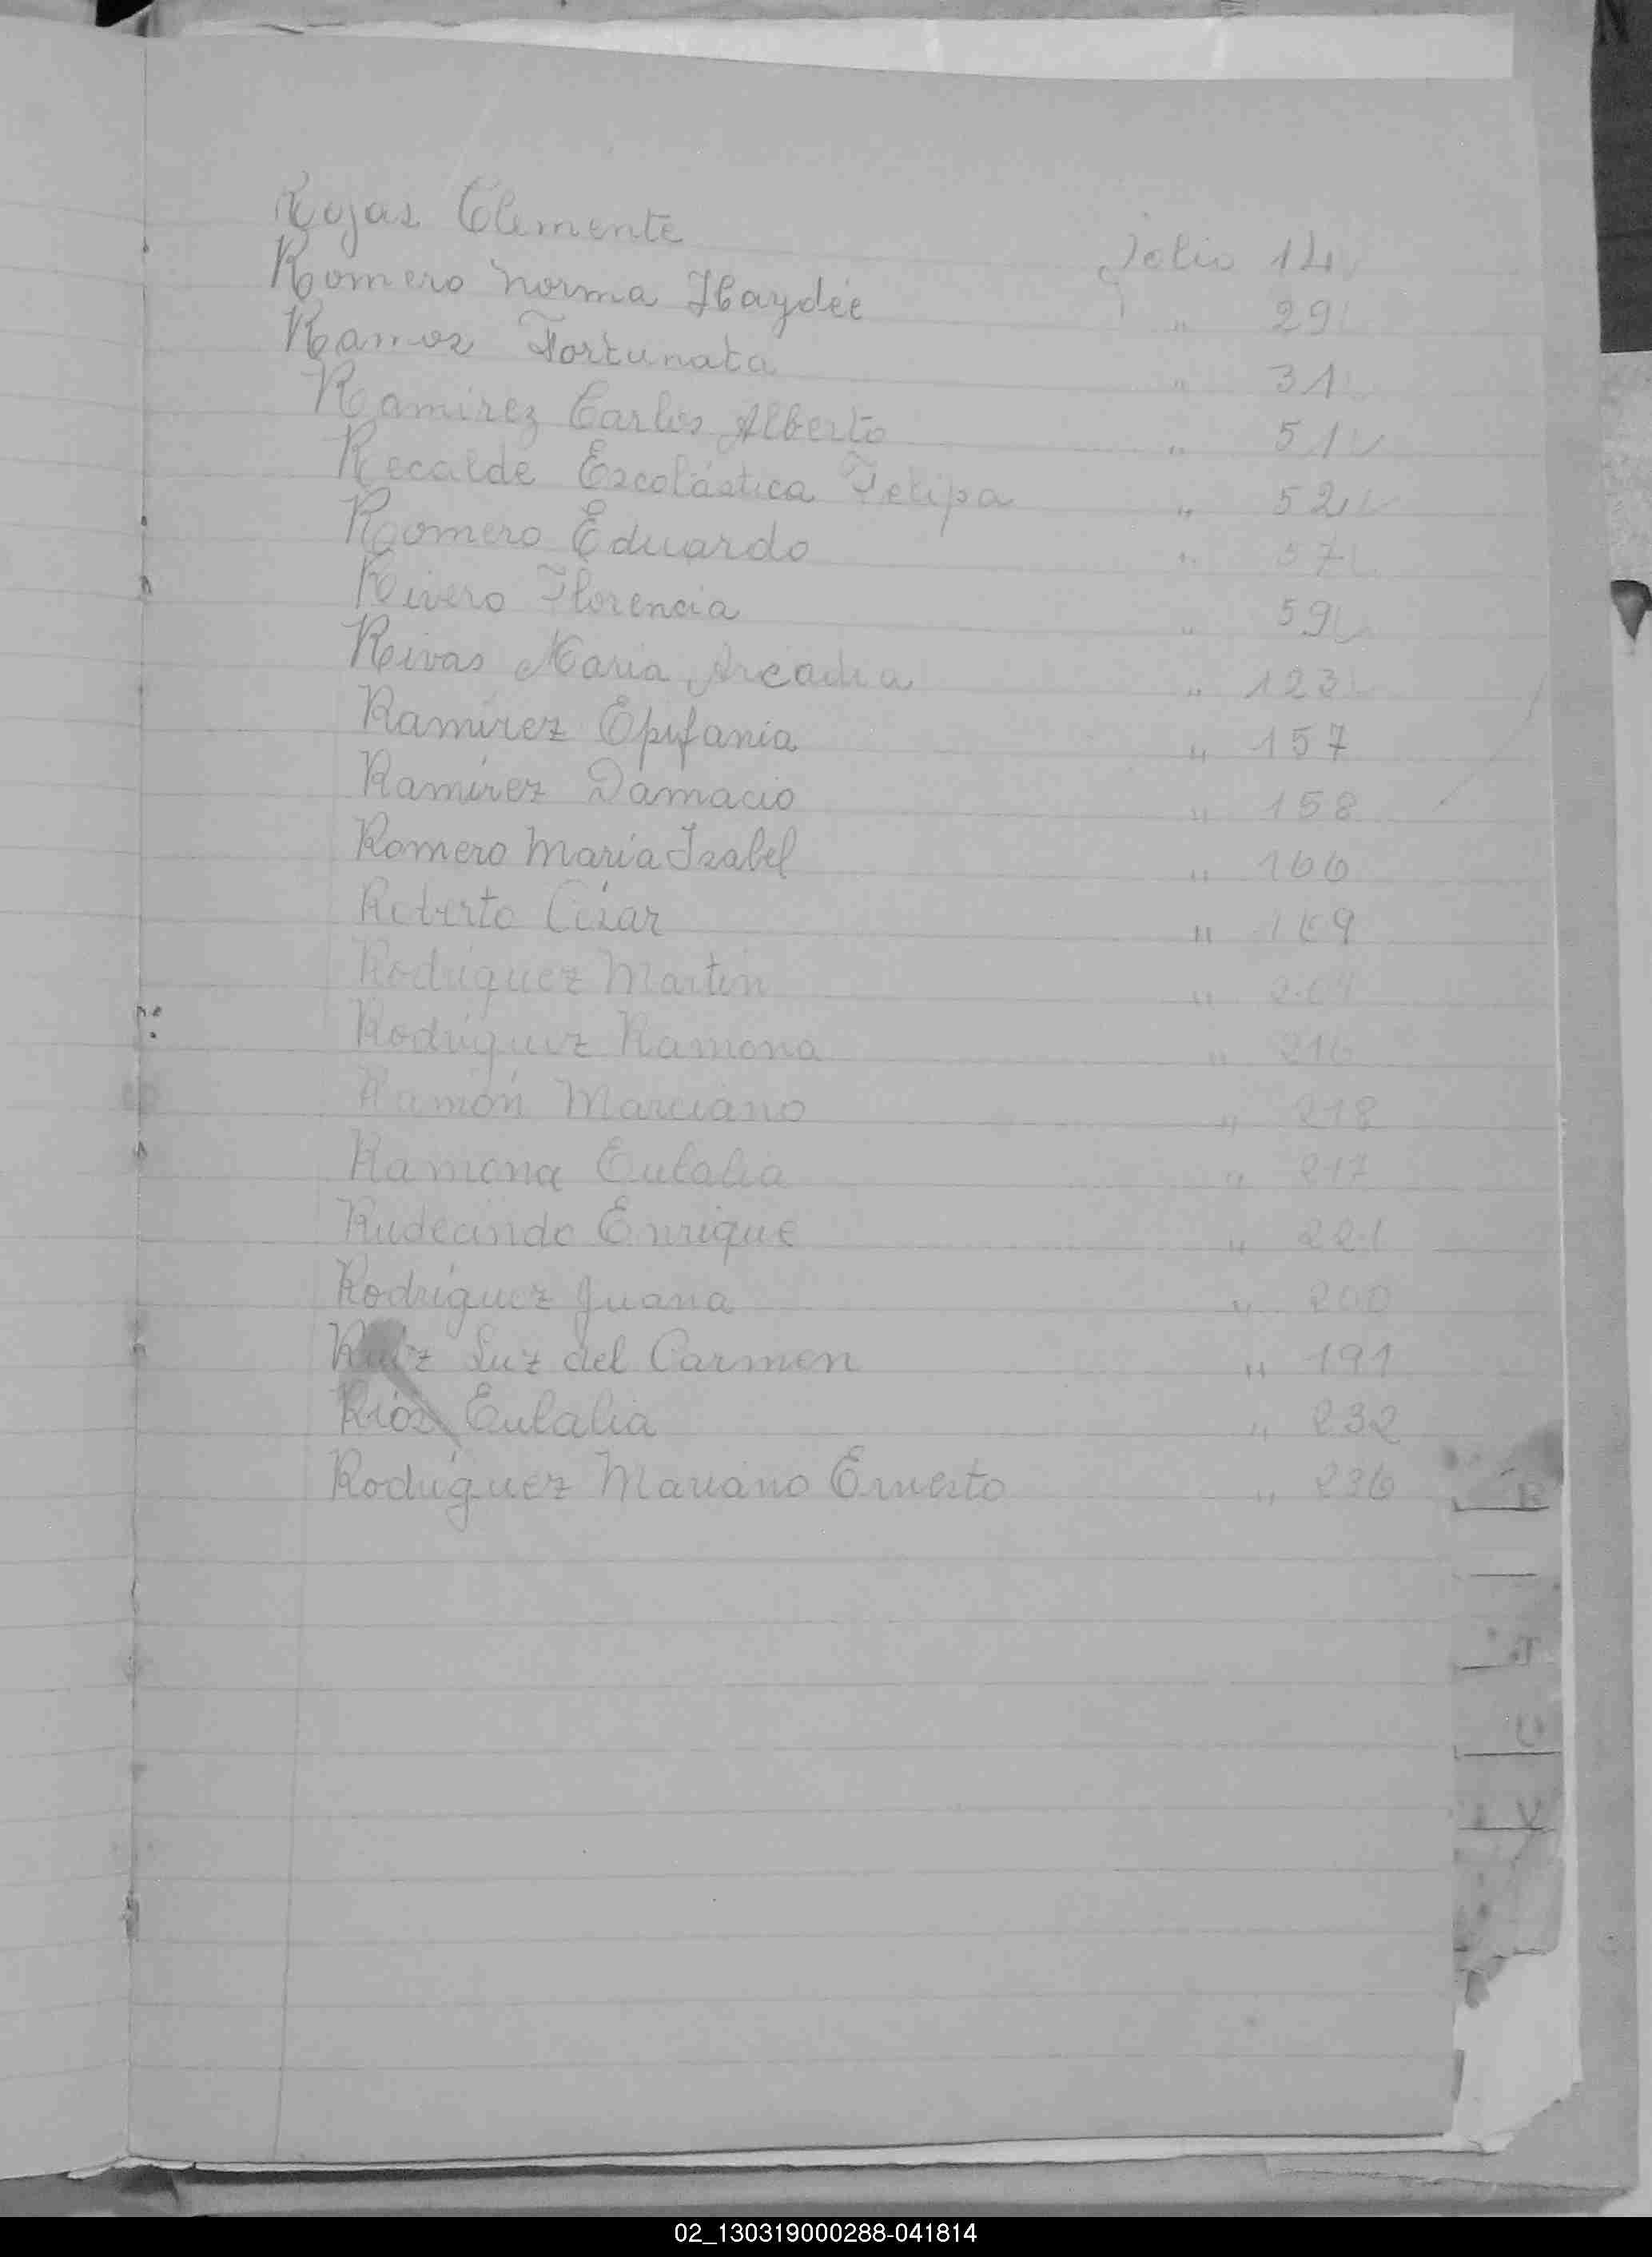 Rojas Clemente Folio 14
Romero Norma Haydée " 29
Ramos Fortunata " 31
Ramirez Carlos Alberto " 51
Recalde Escolástica Felipa " 52
Romero Eduardo " 57
Rivero Florencia " 59
Rivas Maria Arcadia " 123
Ramírez Epifania " 157
Ramírez Damacio " 158
Romero María Isabel " 166
Roberto César " 169
Rodríguez Martín "
Rodríguez Ramona " 216
Ramón Marciano " 218
Ramona Eulalia " 217
Rudecindo Enrique " 221
Rodríguez Juana " 200
Ruiz Luz del Carmen " 191
Ríos Eulalia " 232
Rodríguez Mariano Ernesto " 236
R
T
U
V
02_130319000288-041814